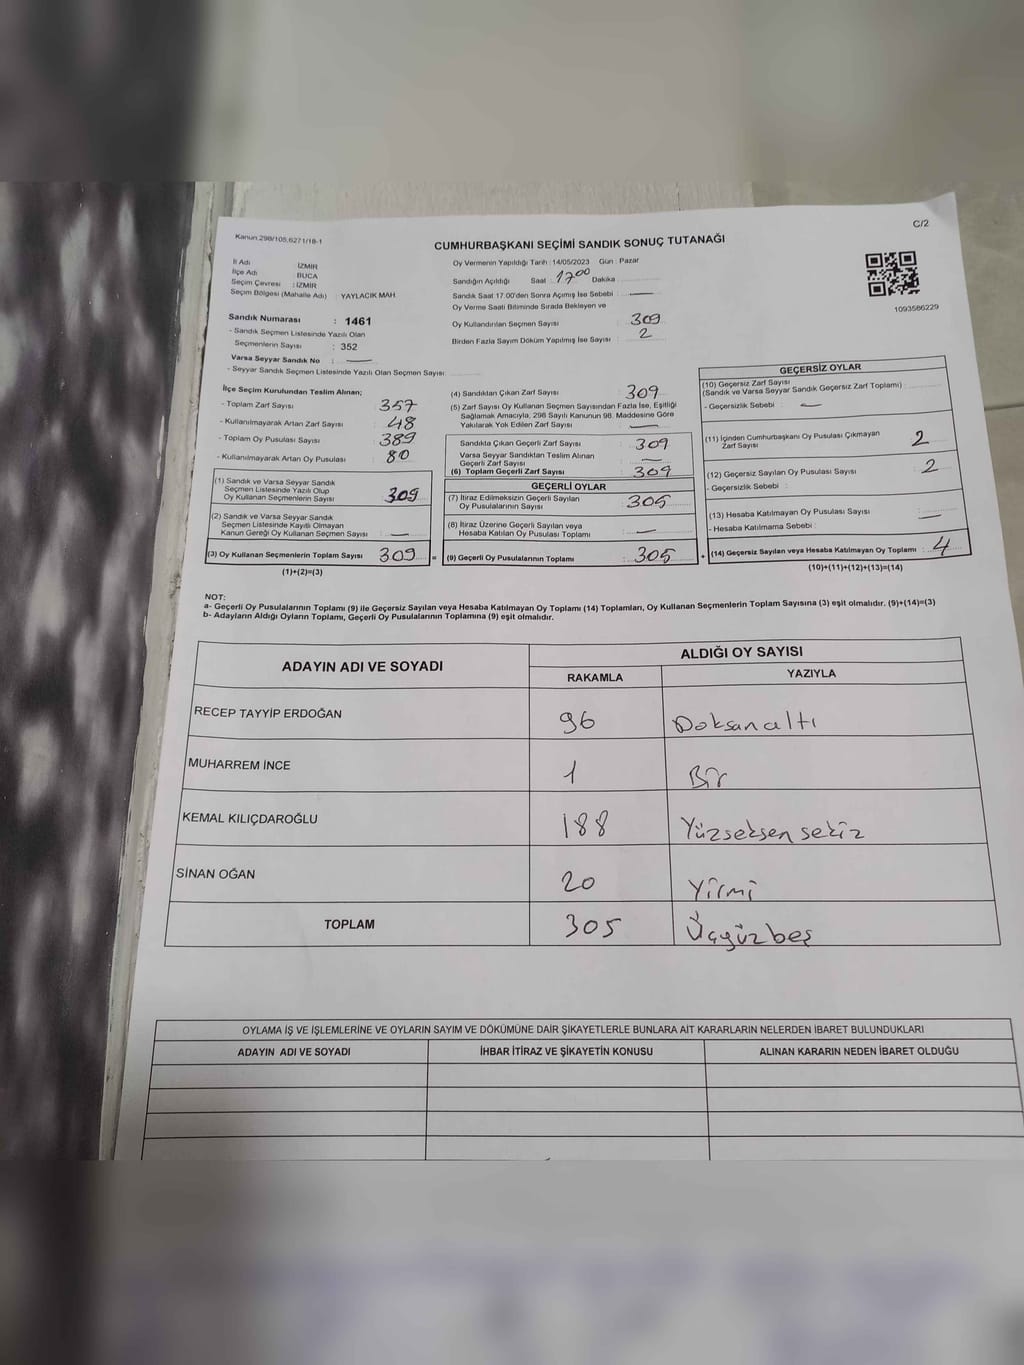 Kanun.298/105,6271/18-1
C/2
CUMHURBAŞKANI SEÇİMİ SANDIK SONUÇ TUTANAĞI
1093586229
İl Adı : İZMİR
İlçe Adı BUCA
Seçim Çevresi : İZMİR
Seçim Bölgesi (Mahalle Adı) : YAYLACIK MAH.
Sandık Numarası : 1461
- Sandık Seçmen Listesinde Yazılı Olan
Seçmenlerin Sayısı : 352
Varsa Seyyar Sandık No : —
- Seyyar Sandık Seçmen Listesinde Yazılı Olan Seçmen Sayısı:
Oy Vermenin Yapıldığı Tarih :14/05/2023 Gün : Pazar
Sandığın Açıldığı Saat : 17 00 Dakika
Sandık Saat 17:00'den Sonra Açımış İse Sebebi : —
Oy Verme Saati Bitiminde Sırada Bekleyen ve
Oy Kullandırılan Seçmen Sayısı : 309
Birden Fazla Sayım Döküm Yapılmış İse Sayısı : 2
İlçe Seçim Kurulundan Teslim Alınan;
- Toplam Zarf Sayısı : 357
- Kullanılmayarak Artan Zarf Sayısı : 48
- Toplam Oy Pusulası Sayısı : 389
- Kullanılmayarak Artan Oy Pusulası : 80
(1) Sandık ve Varsa Seyyar Sandık
Seçmen Listesinde Yazılı Olup
Oy Kullanan Seçmenlerin Sayısı : 309
(2) Sandık ve Varsa Seyyar Sandık
Seçmen Listesinde Kayıtlı Olmayan
Kanun Gereği Oy Kullanan Seçmen Sayısı : —
(3) Oy Kullanan Seçmenlerin Toplam Sayısı : 309 =
(1)+(2)=(3)
(4) Sandıktan Çıkan Zarf Sayısı : 309
(5) Zarf Sayısı Oy Kullanan Seçmen Sayısından Fazla İse, Eşitliği
Sağlamak Amacıyla, 298 Sayılı Kanunun 98. Maddesine Göre
Yakılarak Yok Edilen Zarf Sayısı : —
Sandıkta Çıkan Geçerli Zarf Sayısı : 309
Varsa Seyyar Sandıktan Teslim Alınan
Geçerli Zarf Sayısı : —
(6) Toplam Geçerli Zarf Sayısı : 309
GEÇERLİ OYLAR
(7) İtiraz Edilmeksizin Geçerli Sayılan
Oy Pusulalarının Sayısı : 305
(8) İtiraz Üzerine Geçerli Sayılan veya
Hesaba Katılan Oy Pusulası Toplamı : —
(9) Geçerli Oy Pusulalarının Toplamı : 305 +
GEÇERSİZ OYLAR
(10) Geçersiz Zarf Sayısı
(Sandık ve Varsa Seyyar Sandık Geçersiz Zarf Toplamı) :
- Geçersizlik Sebebi : —
(11) İçinden Cumhurbaşkanı Oy Pusulası Çıkmayan
Zarf Sayısı : 2
(12) Geçersiz Sayılan Oy Pusulası Sayısı : 2
- Geçersizlik Sebebi :
(13) Hesaba Katılmayan Oy Pusulası Sayısı : —
- Hesaba Katılmama Sebebi :
(14) Geçersiz Sayılan veya Hesaba Katılmayan Oy Toplamı : 4
(10)+(11)+(12)+(13)=(14)
NOT:
a- Geçerli Oy Pusulalarının Toplamı (9) ile Geçersiz Sayılan veya Hesaba Katılmayan Oy Toplamı (14) Toplamları, Oy Kullanan Seçmenlerin Toplam Sayısına (3) eşit olmalıdır. (9)+(14)=(3)
b- Adayların Aldığı Oyların Toplamı, Geçerli Oy Pusulalarının Toplamına (9) eşit olmalıdır.
ADAYIN ADI VE SOYADI ALDIĞI OY SAYISI
RAKAMLA YAZIYLA
RECEP TAYYİP ERDOĞAN 96 Doksanaltı
MUHARREM İNCE 1 Bir
KEMAL KILIÇDAROĞLU 188 Yüzseksensekiz
SİNAN OĞAN 20 Yirmi
TOPLAM 305 Üçyüzbeş
OYLAMA İŞ VE İŞLEMLERİNE VE OYLARIN SAYIM VE DÖKÜMÜNE DAİR ŞİKAYETLERLE BUNLARA AİT KARARLARIN NELERDEN İBARET BULUNDUKLARI
ADAYIN ADI VE SOYADI İHBAR İTİRAZ VE ŞİKAYETİN KONUSU ALINAN KARARIN NEDEN İBARET OLDUĞU